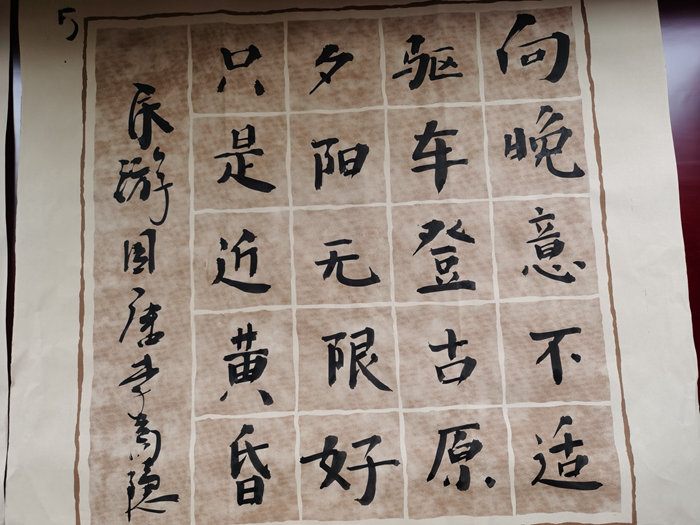 向晚意不适
驱车登古原
夕阳无限好
只是近黄昏
乐游园唐李商隐